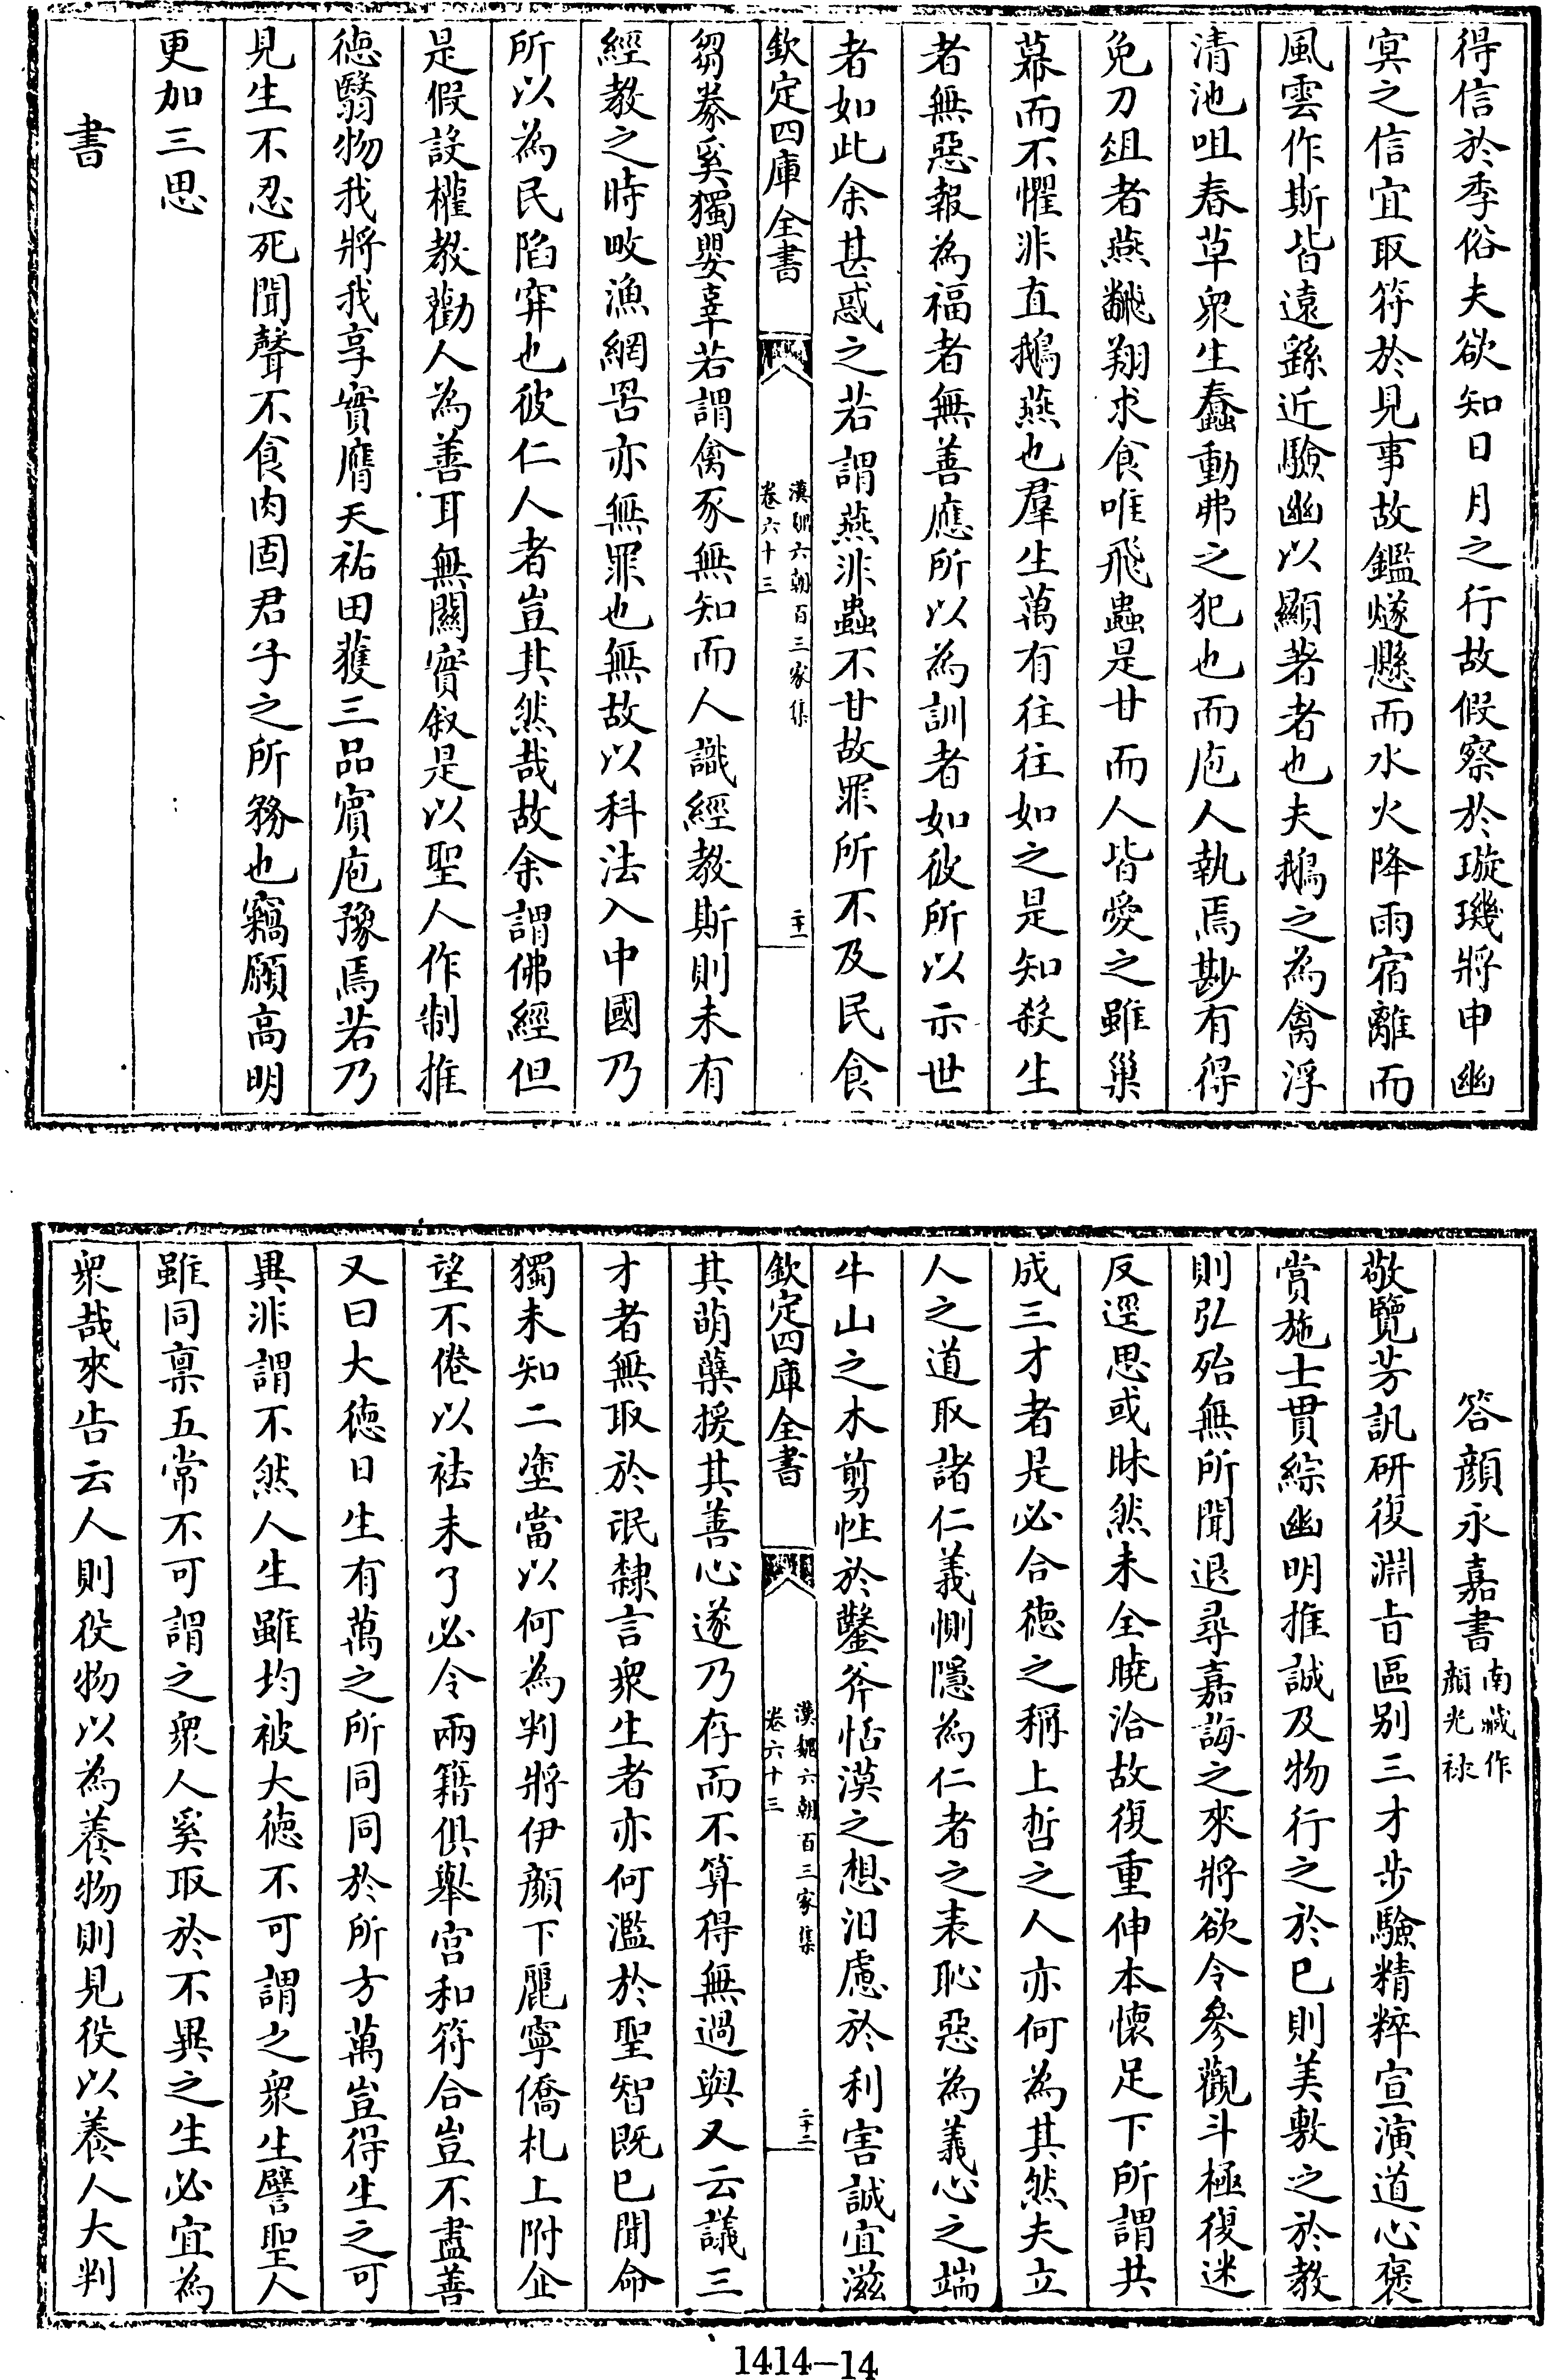 得信於季俗夫欲知日月之行故假察於璇璣將申幽
冥之信宜取符於見事故鑑燧懸而水火降雨宿離而
風雲作斯皆遠繇近驗幽以顯著者也夫鵝之為禽浮
清池咀春草衆生蠢動弗之犯也而庖人執焉尠有得
免刀俎者燕翻翔求食唯飛蟲是甘而人皆愛之雖巢
幕而不懼非直鵝燕也羣生萬有往往如之是知殺生
者無惡報為福者無善應所以為訓者如彼所以示世
者如此余甚惑之若謂燕非蟲不甘故罪所不及民食
欽定四庫全書
漢魏六朝百三家集
卷六十三
二十一
芻豢奚獨嬰辜若謂禽豕無知而人識經教斯則未有
經教之時畋漁網罟亦無罪也無故以科法入中國乃
所以為民陷穽也彼仁人者豈其然哉故余謂佛經但
是假設權教勸人為善耳無關實叙是以聖人作制推
德翳物我將我享實膺天祐田獲三品賓庖豫焉若乃
見生不忍死聞聲不食肉固君子之所務也竊願高明
更加三思
書
答顏永嘉書
南藏作
顏光祿
敬覽芳訊研復淵旨區别三才步驗精粹宣演道心褒
賞施士貫綜幽明推誠及物行之於已則美敷之於教
則弘殆無所聞退尋嘉誨之來將欲令參觀斗極復迷
反逕思或昧然未全曉洽故復重伸本懷足下所謂共
成三才者是必合德之稱上哲之人亦何為其然夫立
人之道取諸仁義惻隱為仁者之表恥惡為義心之端
牛山之木剪性於鑿斧恬漠之想汨慮於利害誠宜滋
欽定四庫全書
漢魏六朝百三家集
卷六十三
二十二
其萌蘖援其善心遂乃存而不算得無過與又云議三
才者無取於氓隸言衆生者亦何濫於聖智既已聞命
獨未知二塗當以何為判將伊顏下麗寧僑札上附企
望不倦以袪未了必令兩籍俱舉宫和符合豈不盡善
又曰大德曰生有萬之所同同於所方萬豈得生之可
異非謂不然人生雖均被大德不可謂之衆生譬聖人
雖同禀五常不可謂之衆人奚取於不異之生必宜為
衆哉來告云人則役物以為養物則見役以養人大判
1414—14